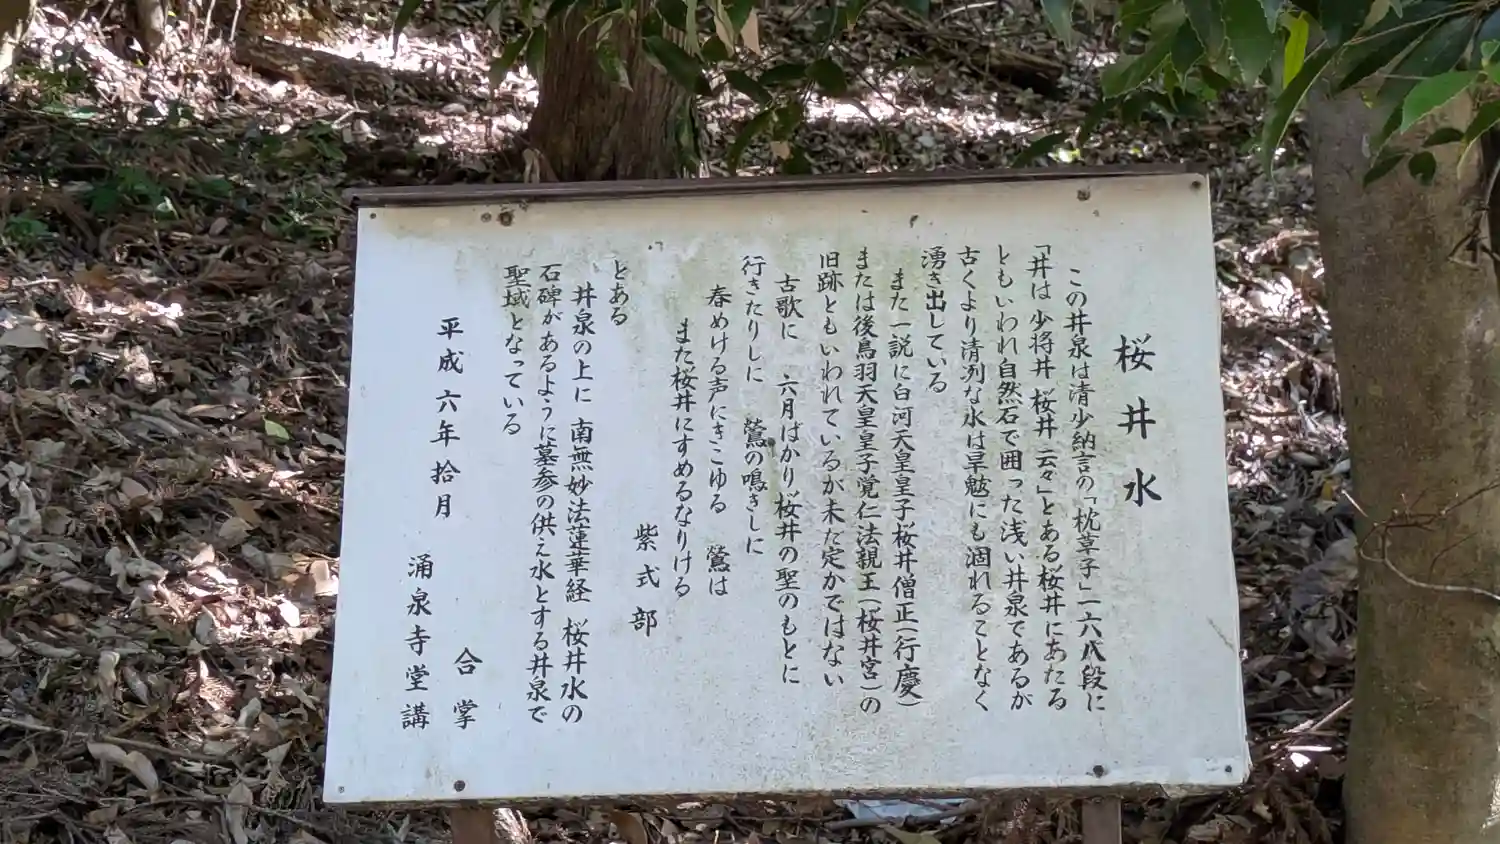 桜井水
この井泉は清少納言の「枕草子」一六八段に
「井は 少将井 桜井 云々」とある桜井にあたる
ともいわれ自然石で囲った浅い井泉であるが
古くより清冽な水は旱魃にも涸れることなく
湧き出している
また一説に白河天皇皇子桜井僧正(行慶)
または後鳥羽天皇皇子覚仁法親王(桜井宮)の
旧跡ともいわれているが未だ定かではない
古歌に 六月ばかり桜井の聖のもとに
行きたりしに 鶯の鳴きしに
春めける声にきこゆる 鶯は
また桜井にすめるなりける
紫式部
とある
井泉の上に 南無妙法蓮華経 桜井水の
石碑があるように墓参の供え水とする井泉で
聖域となっている
合掌
平成六年拾月
涌泉寺堂講